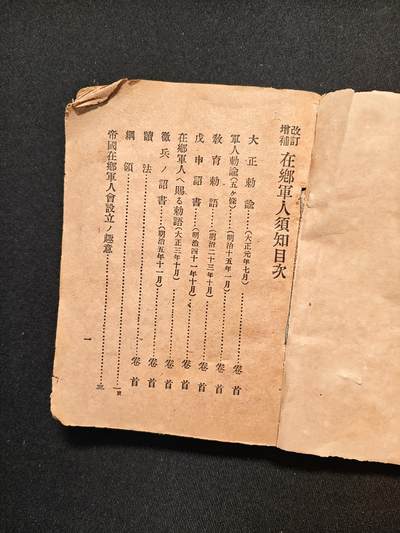 改訂
增補
在鄉軍人須知目次
大正勅諭……(大正元年七月)……卷首
軍人勅諭(五ケ條)……(明治十五年一月)……卷首
敎育勅語……(明治二十三年十月)……卷首
戊申詔書……(明治四十一年十月)……卷首
在鄉軍人ヘ賜る勅語(大正三年十月)……卷首
徵兵ノ詔書……(明治五年十一月)……卷首
讀法……卷首
綱領……一頁
帝國在鄉軍人會設立ノ趣意……三
一